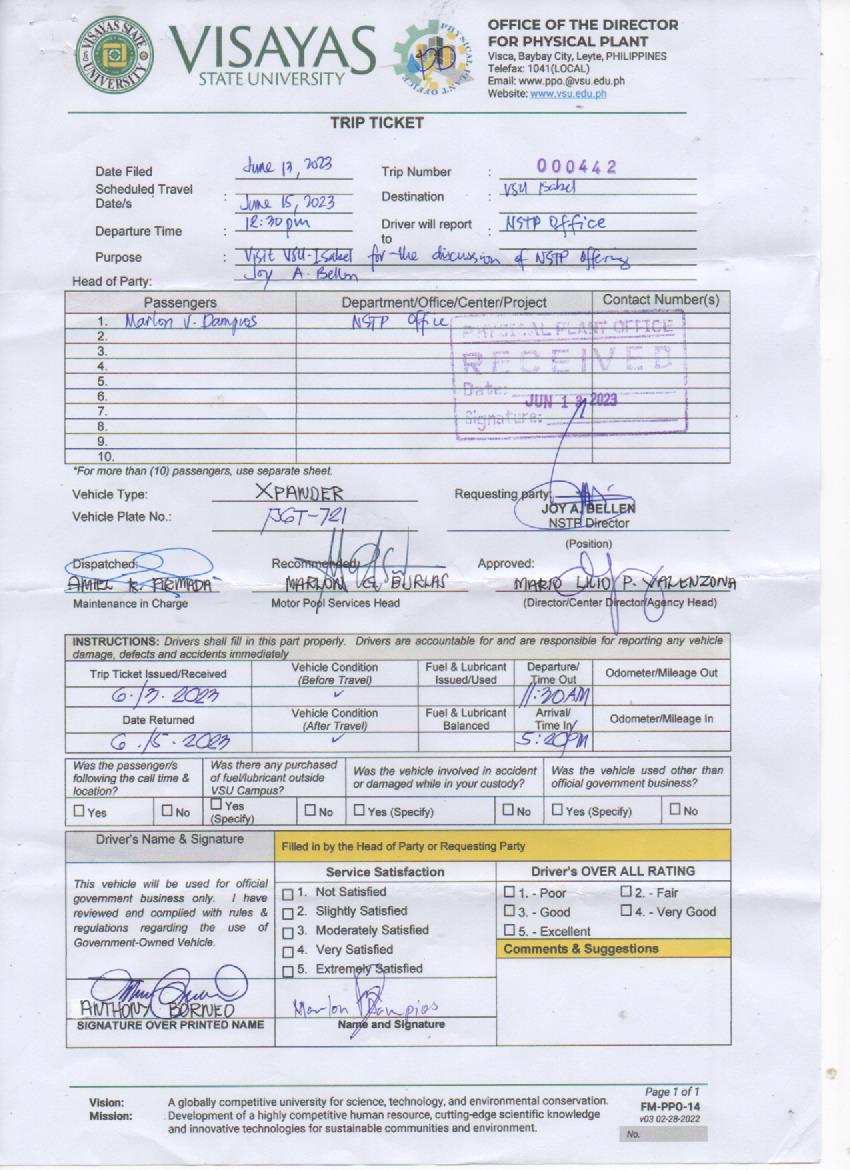 VISAYAS STATE UNIVERSITY
VISAYAS
STATE UNIVERSITY
PHYSICAL PLANT OFFICE
OFFICE OF THE DIRECTOR
FOR PHYSICAL PLANT
Visca, Baybay City, Leyte, PHILIPPINES
Telefax: 1041(LOCAL)
Email: www.ppo.@vsu.edu.ph
Website: www.vsu.edu.ph
TRIP TICKET
Date Filed : June 13, 2023
Trip Number : 000442
Scheduled Travel Date/s : June 15, 2023
Destination : VSU Isabel
Departure Time : 12:30 pm
Driver will report to : NSTP Office
Purpose : Visit VSU-Isabel for the discussion of NSTP Offering
Head of Party: Joy A. Bellen
Passengers Department/Office/Center/Project Contact Number(s)
1. Marlon V. Dampios NSTP Office
2.
3.
4.
5.
6.
7.
8.
9.
10.
PHYSICAL PLANT OFFICE
RECEIVED
Date: JUN 13 2023
Signature:
*For more than (10) passengers, use separate sheet.
Vehicle Type: XPANDER
Requesting party:
JOY A. BELLEN
Vehicle Plate No.:
NSTP Director
(Position)
Dispatched: Recommended: Approved:
AMIEL R. ARMADA MARLON G. BURLAS MARIO LILIO P. VALENZONA
Maintenance in Charge Motor Pool Services Head (Director/Center Director/Agency Head)
INSTRUCTIONS: Drivers shall fill in this part properly. Drivers are accountable for and are responsible for reporting any vehicle
damage, defects and accidents immediately
Trip Ticket Issued/Received Vehicle Condition (Before Travel) Fuel & Lubricant Issued/Used Departure/ Time Out Odometer/Mileage Out
6.13.2023 ✓ 11:30AM
Date Returned Vehicle Condition (After Travel) Fuel & Lubricant Balanced Arrival/ Time In Odometer/Mileage In
6.15.2023 ✓ 5:20PM
Was the passenger/s following the call time & location?
Was there any purchased of fuel/lubricant outside VSU Campus?
Was the vehicle involved in accident or damaged while in your custody?
Was the vehicle used other than official government business?
☐ Yes ☐ No ☐ Yes (Specify) ☐ No ☐ Yes (Specify) ☐ No ☐ Yes (Specify) ☐ No
Driver's Name & Signature
Filled in by the Head of Party or Requesting Party
This vehicle will be used for official
government business only. I have
reviewed and complied with rules &
regulations regarding the use of
Government-Owned Vehicle.
ANTHONY BORNEO
SIGNATURE OVER PRINTED NAME
Service Satisfaction
☐ 1. Not Satisfied
☐ 2. Slightly Satisfied
☐ 3. Moderately Satisfied
☐ 4. Very Satisfied
☐ 5. Extremely Satisfied
Marlon Dampios
Name and Signature
Driver's OVER ALL RATING
☐ 1. - Poor ☐ 2. - Fair
☐ 3. - Good ☐ 4. - Very Good
☐ 5. - Excellent
Comments & Suggestions
Vision: A globally competitive university for science, technology, and environmental conservation.
Mission: Development of a highly competitive human resource, cutting-edge scientific knowledge
and innovative technologies for sustainable communities and environment.
Page 1 of 1
FM-PPO-14
v03 02-28-2022
No.